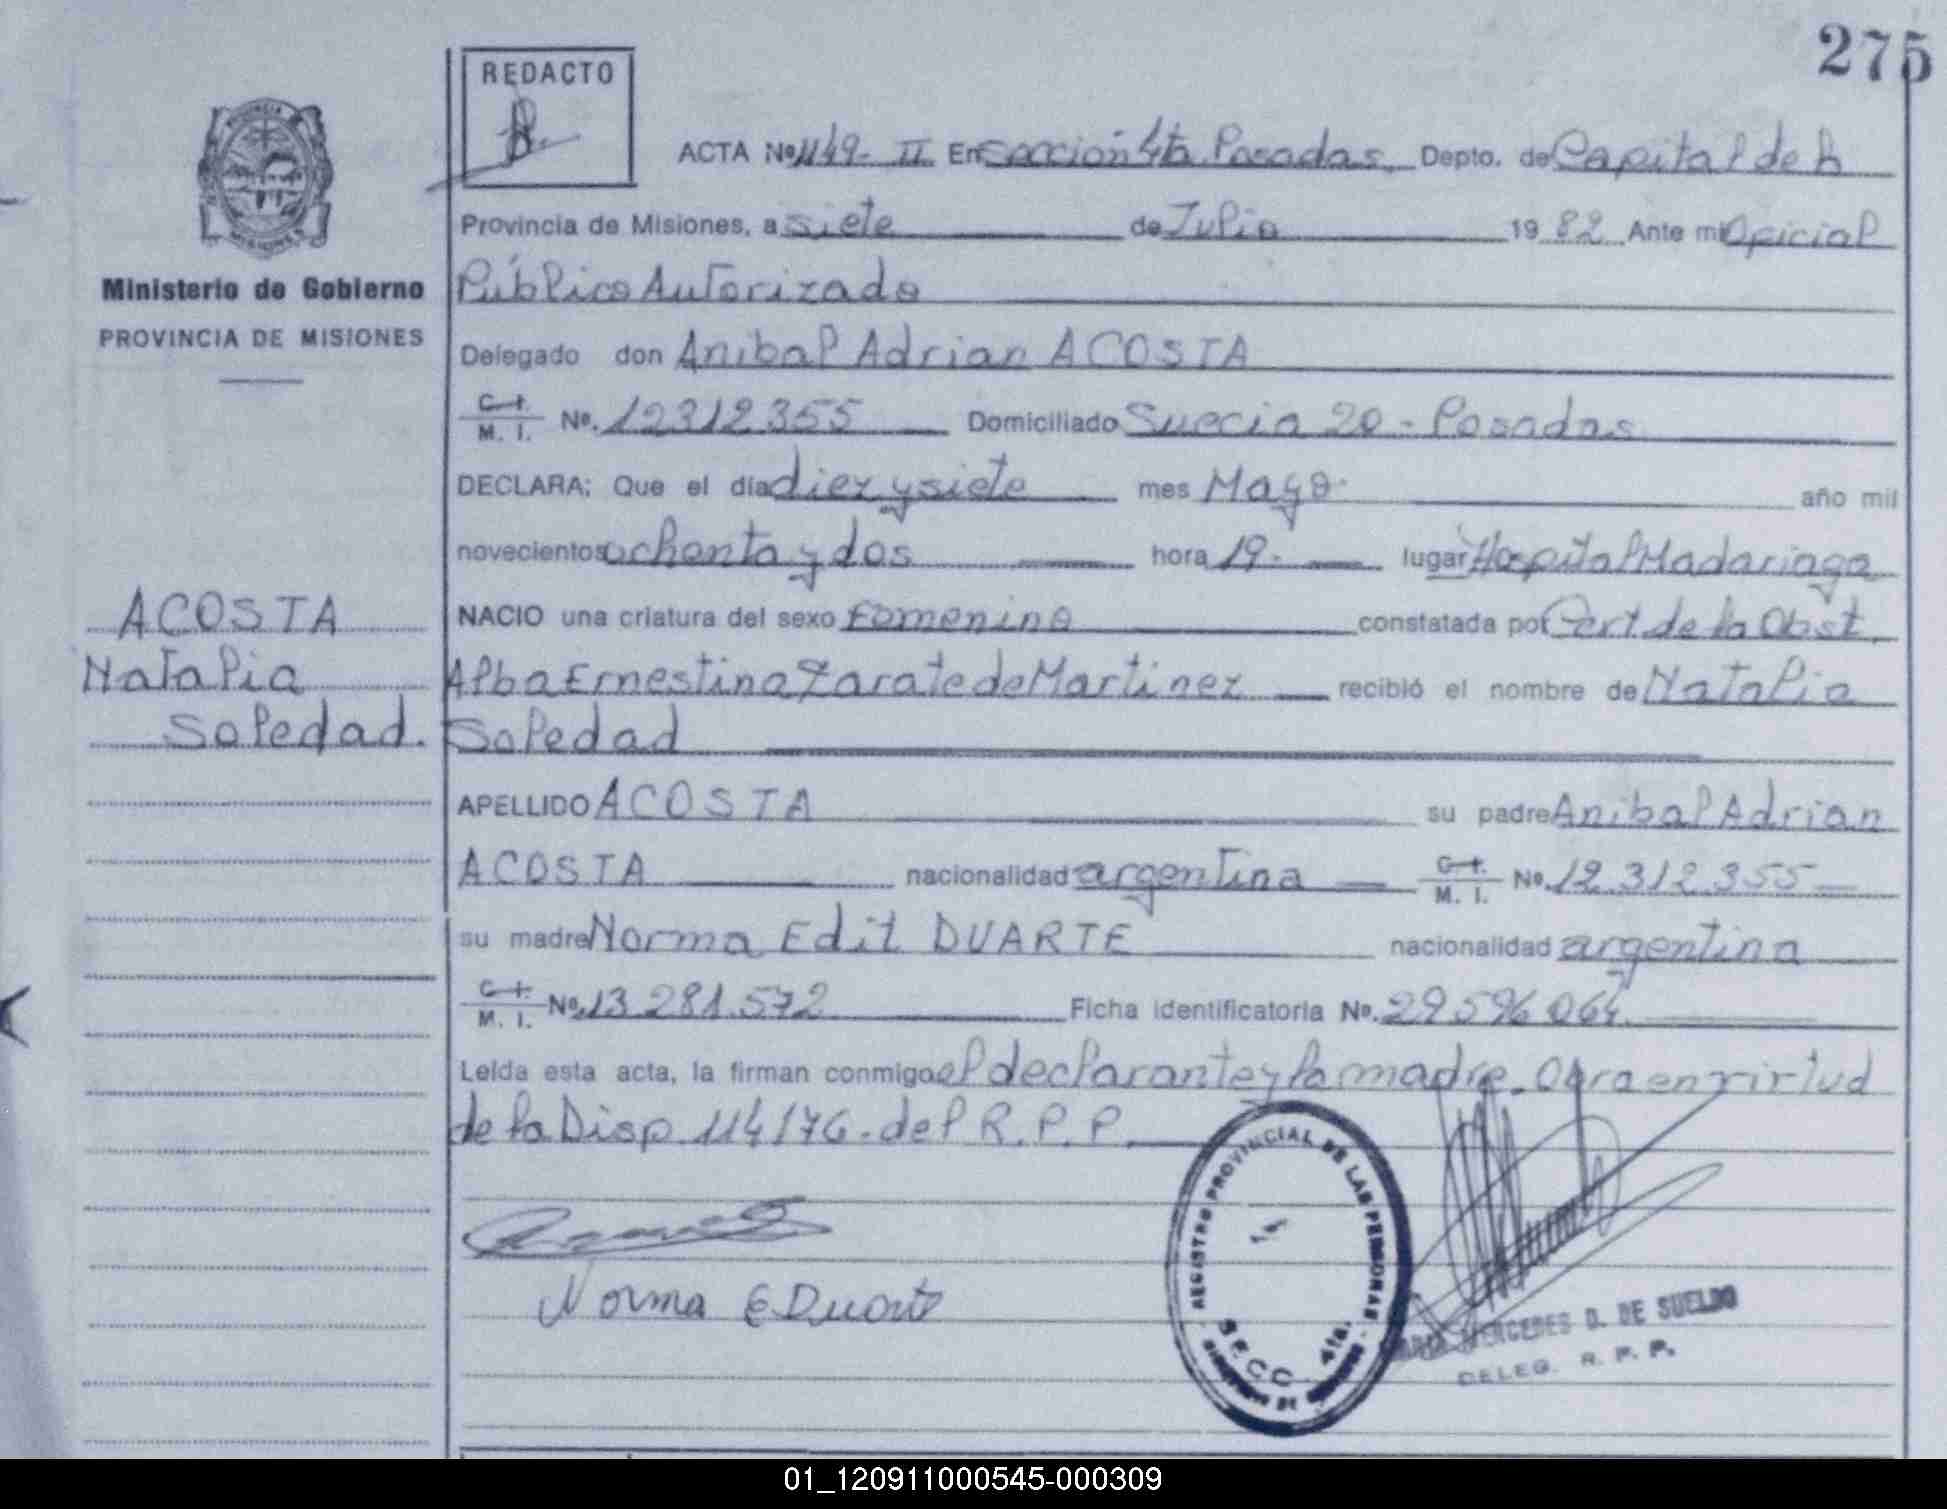 275
REDACTO
ACTA Nº 1149- II En Sección 4ta Posadas. Depto. de Capital de la
Provincia de Misiones, a siete de Julio 1982 Ante mi Oficial
Ministerio de Gobierno
Público Autorizado
PROVINCIA DE MISIONES
Delegado don Anibal Adrian ACOSTA
C. I. M. I. Nº. 12312355 Domiciliado Suecia 20 - Posadas
DECLARA: Que el día diez y siete mes Mayo. año mil
novecientos ochenta y dos hora 19. lugar Hospital Madariaga
NACIO una criatura del sexo Femenino constatada por Cert de la Obst.
Alba Ernestina Zarate de Martinez recibió el nombre de Natalia
Soledad
ACOSTA
Natalia
Soledad.
APELLIDO ACOSTA su padre Anibal Adrian
ACOSTA nacionalidad argentina C. I. M. I. Nº. 12.312.355
su madre Norma Edit DUARTE nacionalidad argentina
C. I. M. I. Nº. 13.281.572 Ficha identificatoria Nº. 29596064
Leída esta acta, la firman conmigo el declarante y la madre. Obra en virtud
de la Disp. 114/76. del R.P.P.
Norma E Duarte
REGISTRO PROVINCIAL DE LAS PERSONAS
SECC. 4ta.
MERCEDES D. DE SUELDO
DELEG. R. P. P.
01_120911000545-000309